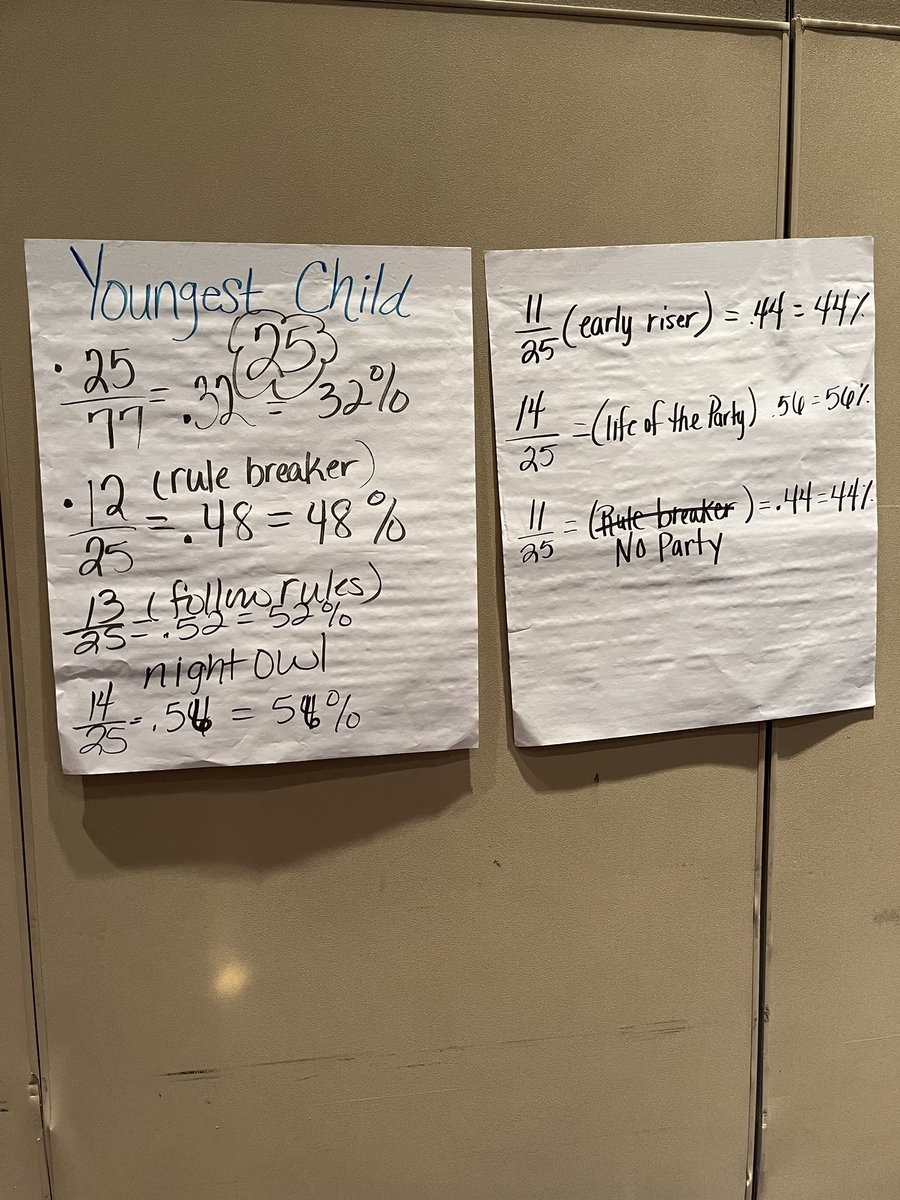 Youngest Child
25
• 25/77 = .32 = 32%
• 12/25 (rule breaker) = .48 = 48%
13/25 (follow rules) = .52 = 52%
night owl
14/25 = .56 = 56%
11/25 (early riser) = .44 = 44%
14/25 = (life of the Party) .56 = 56%
11/25 = (Rule breaker) = .44 = 44%
No Party